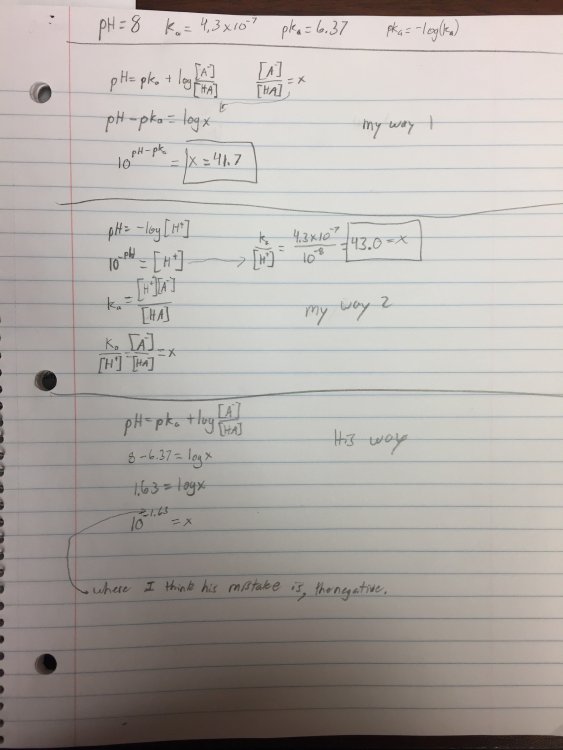 pH = 8 Ka = 4.3x10^-7 pka = 6.37 pka = -log(ka)
pH = pka + log [A-]/[HA] [A-]/[HA] = x
pH - pka = log x
my way 1
10^pH-pka = x = 41.7
pH = -log[H+]
10^-pH = [H+] → ka/[H+] = 4.3x10^-7/10^-8 = 43.0 = x
ka = [H+][A-]/[HA]
my way 2
Ka/[H+] = [A-]/[HA] = x
pH = pka + log [A-]/[HA]
His way
8 - 6.37 = log x
1.63 = log x
10^-1.63 = x
where I think his mistake is, the negative.